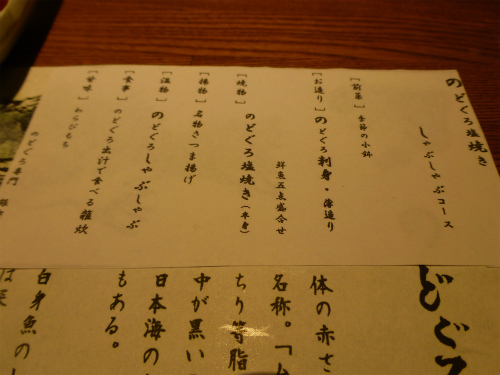 のどぐろ塩焼き
しゃぶしゃぶコース
［前菜］季節の小鉢
［お造り］のどぐろ刺身・薄造り
鮮魚五点盛合せ
［焼物］のどぐろ塩焼き（半身）
［揚物］名物さつま揚げ
［温物］のどぐろしゃぶしゃぶ
［食事］のどぐろ出汁で食べる雑炊
［甘味］わらびもち
のどぐろ専門
どぐろ
体の赤さ
名称。「
ちり等脂
中が黒い
日本海の
もある。
白身魚の
は